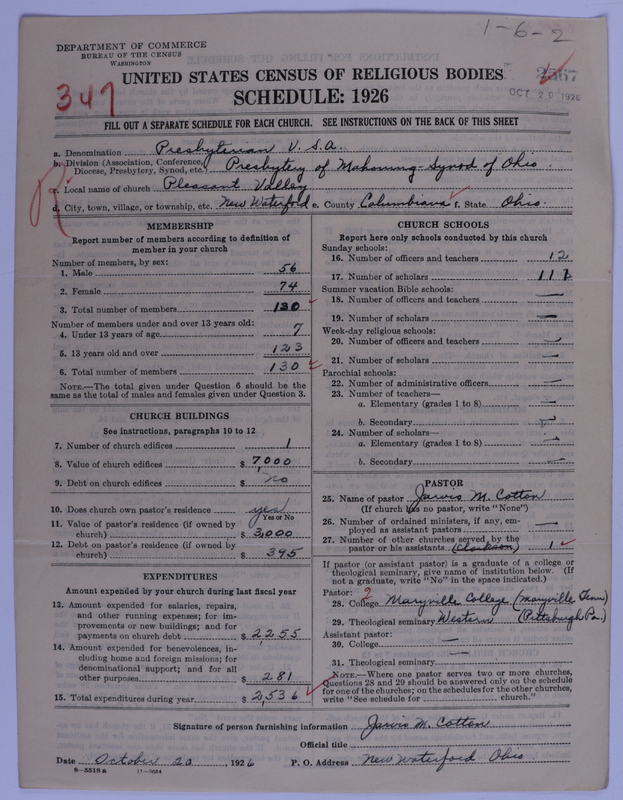 1-6-2
DEPARTMENT OF COMMERCE
BUREAU OF THE CENSUS
WASHINGTON
UNITED STATES CENSUS OF RELIGIOUS BODIES
SCHEDULE: 1926
347
OCT 20 1926
FILL OUT A SEPARATE SCHEDULE FOR EACH CHURCH. SEE INSTRUCTIONS ON THE BACK OF THIS SHEET
a. Denomination Presbyterian U.S.A.
b. Division (Association, Conference, Diocese, Presbytery, Synod, etc.) Presbytery of Mahoning-Synod of Ohio
c. Local name of church Pleasant Valley
d. City, town, village, or township, etc. New Waterford e. County Columbiana f. State Ohio.
MEMBERSHIP
Report number of members according to definition of
member in your church
Number of members, by sex:
1. Male 56
2. Female 74
3. Total number of members 130
Number of members under and over 13 years old:
4. Under 13 years of age 7
5. 13 years old and over 123
6. Total number of members 130
NOTE.—The total given under Question 6 should be the
same as the total of males and females given under Question 3.
CHURCH BUILDINGS
See instructions, paragraphs 10 to 12
7. Number of church edifices 1
8. Value of church edifices $ 7,000
9. Debt on church edifices $ No
10. Does church own pastor's residence yes
Yes or No
11. Value of pastor's residence (if owned by
church) $ 3,000
12. Debt on pastor's residence (if owned by
church) $ 395
EXPENDITURES
Amount expended by your church during last fiscal year
13. Amount expended for salaries, repairs,
and other running expenses; for im-
provements or new buildings; and for
payments on church debt $ 2,255
14. Amount expended for benevolences, in-
cluding home and foreign missions; for
denominational support; and for all
other purposes $ 281
15. Total expenditures during year $ 2,536
CHURCH SCHOOLS
Report here only schools conducted by this church
Sunday schools:
16. Number of officers and teachers 12
17. Number of scholars
Summer vacation Bible schools:
18. Number of officers and teachers —
19. Number of scholars —
Week-day religious schools:
20. Number of officers and teachers —
21. Number of scholars —
Parochial schools:
22. Number of administrative officers —
23. Number of teachers—
a. Elementary (grades 1 to 8) —
b. Secondary —
24. Number of scholars—
a. Elementary (grades 1 to 8) —
b. Secondary —
PASTOR
25. Name of pastor Jarvis M. Cotton
(If church has no pastor, write "None")
26. Number of ordained ministers, if any, em-
ployed as assistant pastors —
27. Number of other churches served by the
pastor or his assistants (Clarkson) 1
If pastor (or assistant pastor) is a graduate of a college or
theological seminary, give name of institution below. (If
not a graduate, write "No" in the space indicated.)
Pastor: 2
28. College Maryville College (Maryville Tenn)
29. Theological seminary Western (Pittsburgh Pa.)
Assistant pastor:
30. College —
31. Theological seminary —
NOTE.—Where one pastor serves two or more churches,
Questions 28 and 29 should be answered only on the schedule
for one of the churches; on the schedules for the other churches,
write "See schedule for church."
Signature of person furnishing information Jarvis M. Cotton
Official title
Date October 20, 1926 P. O. Address New Waterford Ohio
8-5518a 11-9034